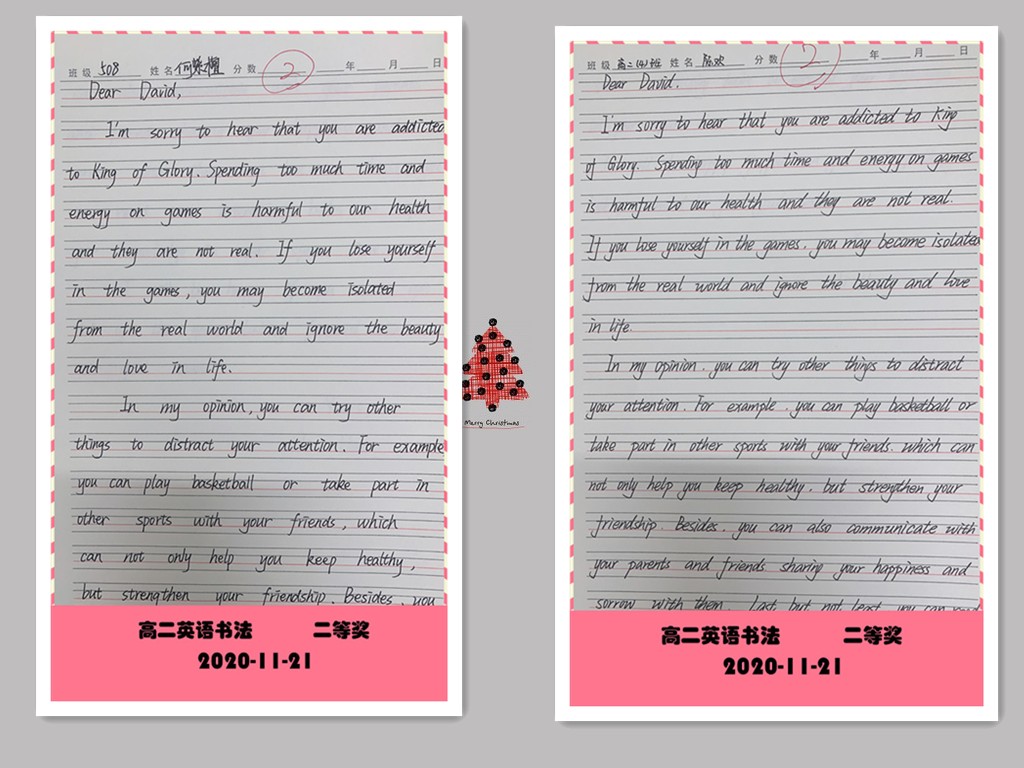 班级 508 姓名 分数 2 年 月 日
Dear David,
I'm sorry to hear that you are addicted
to King of Glory. Spending too much time and
energy on games is harmful to our health
and they are not real. If you lose yourself
in the games, you may become isolated
from the real world and ignore the beauty
and love in life.
In my opinion, you can try other
things to distract your attention. For example
you can play basketball or take part in
other sports with your friends, which
can not only help you keep healthy,
but strengthen your friendship. Besides, you
高二英语书法 二等奖
2020-11-21
Merry Christmas
班级 高二(4)班 姓名 分数 2 年 月 日
Dear David.
I'm sorry to hear that you are addicted to King
of Glory. Spending too much time and energy on games
is harmful to our health and they are not real.
If you lose yourself in the games, you may become isolated
from the real world and ignore the beauty and love
in life.
In my opinion, you can try other things to distract
your attention. For example, you can play basketball or
take part in other sports with your friends, which can
not only help you keep healthy, but strengthen your
friendship. Besides, you can also communicate with
your parents and friends sharing your happiness and
sorrow with them. Last but not least, you can
高二英语书法 二等奖
2020-11-21